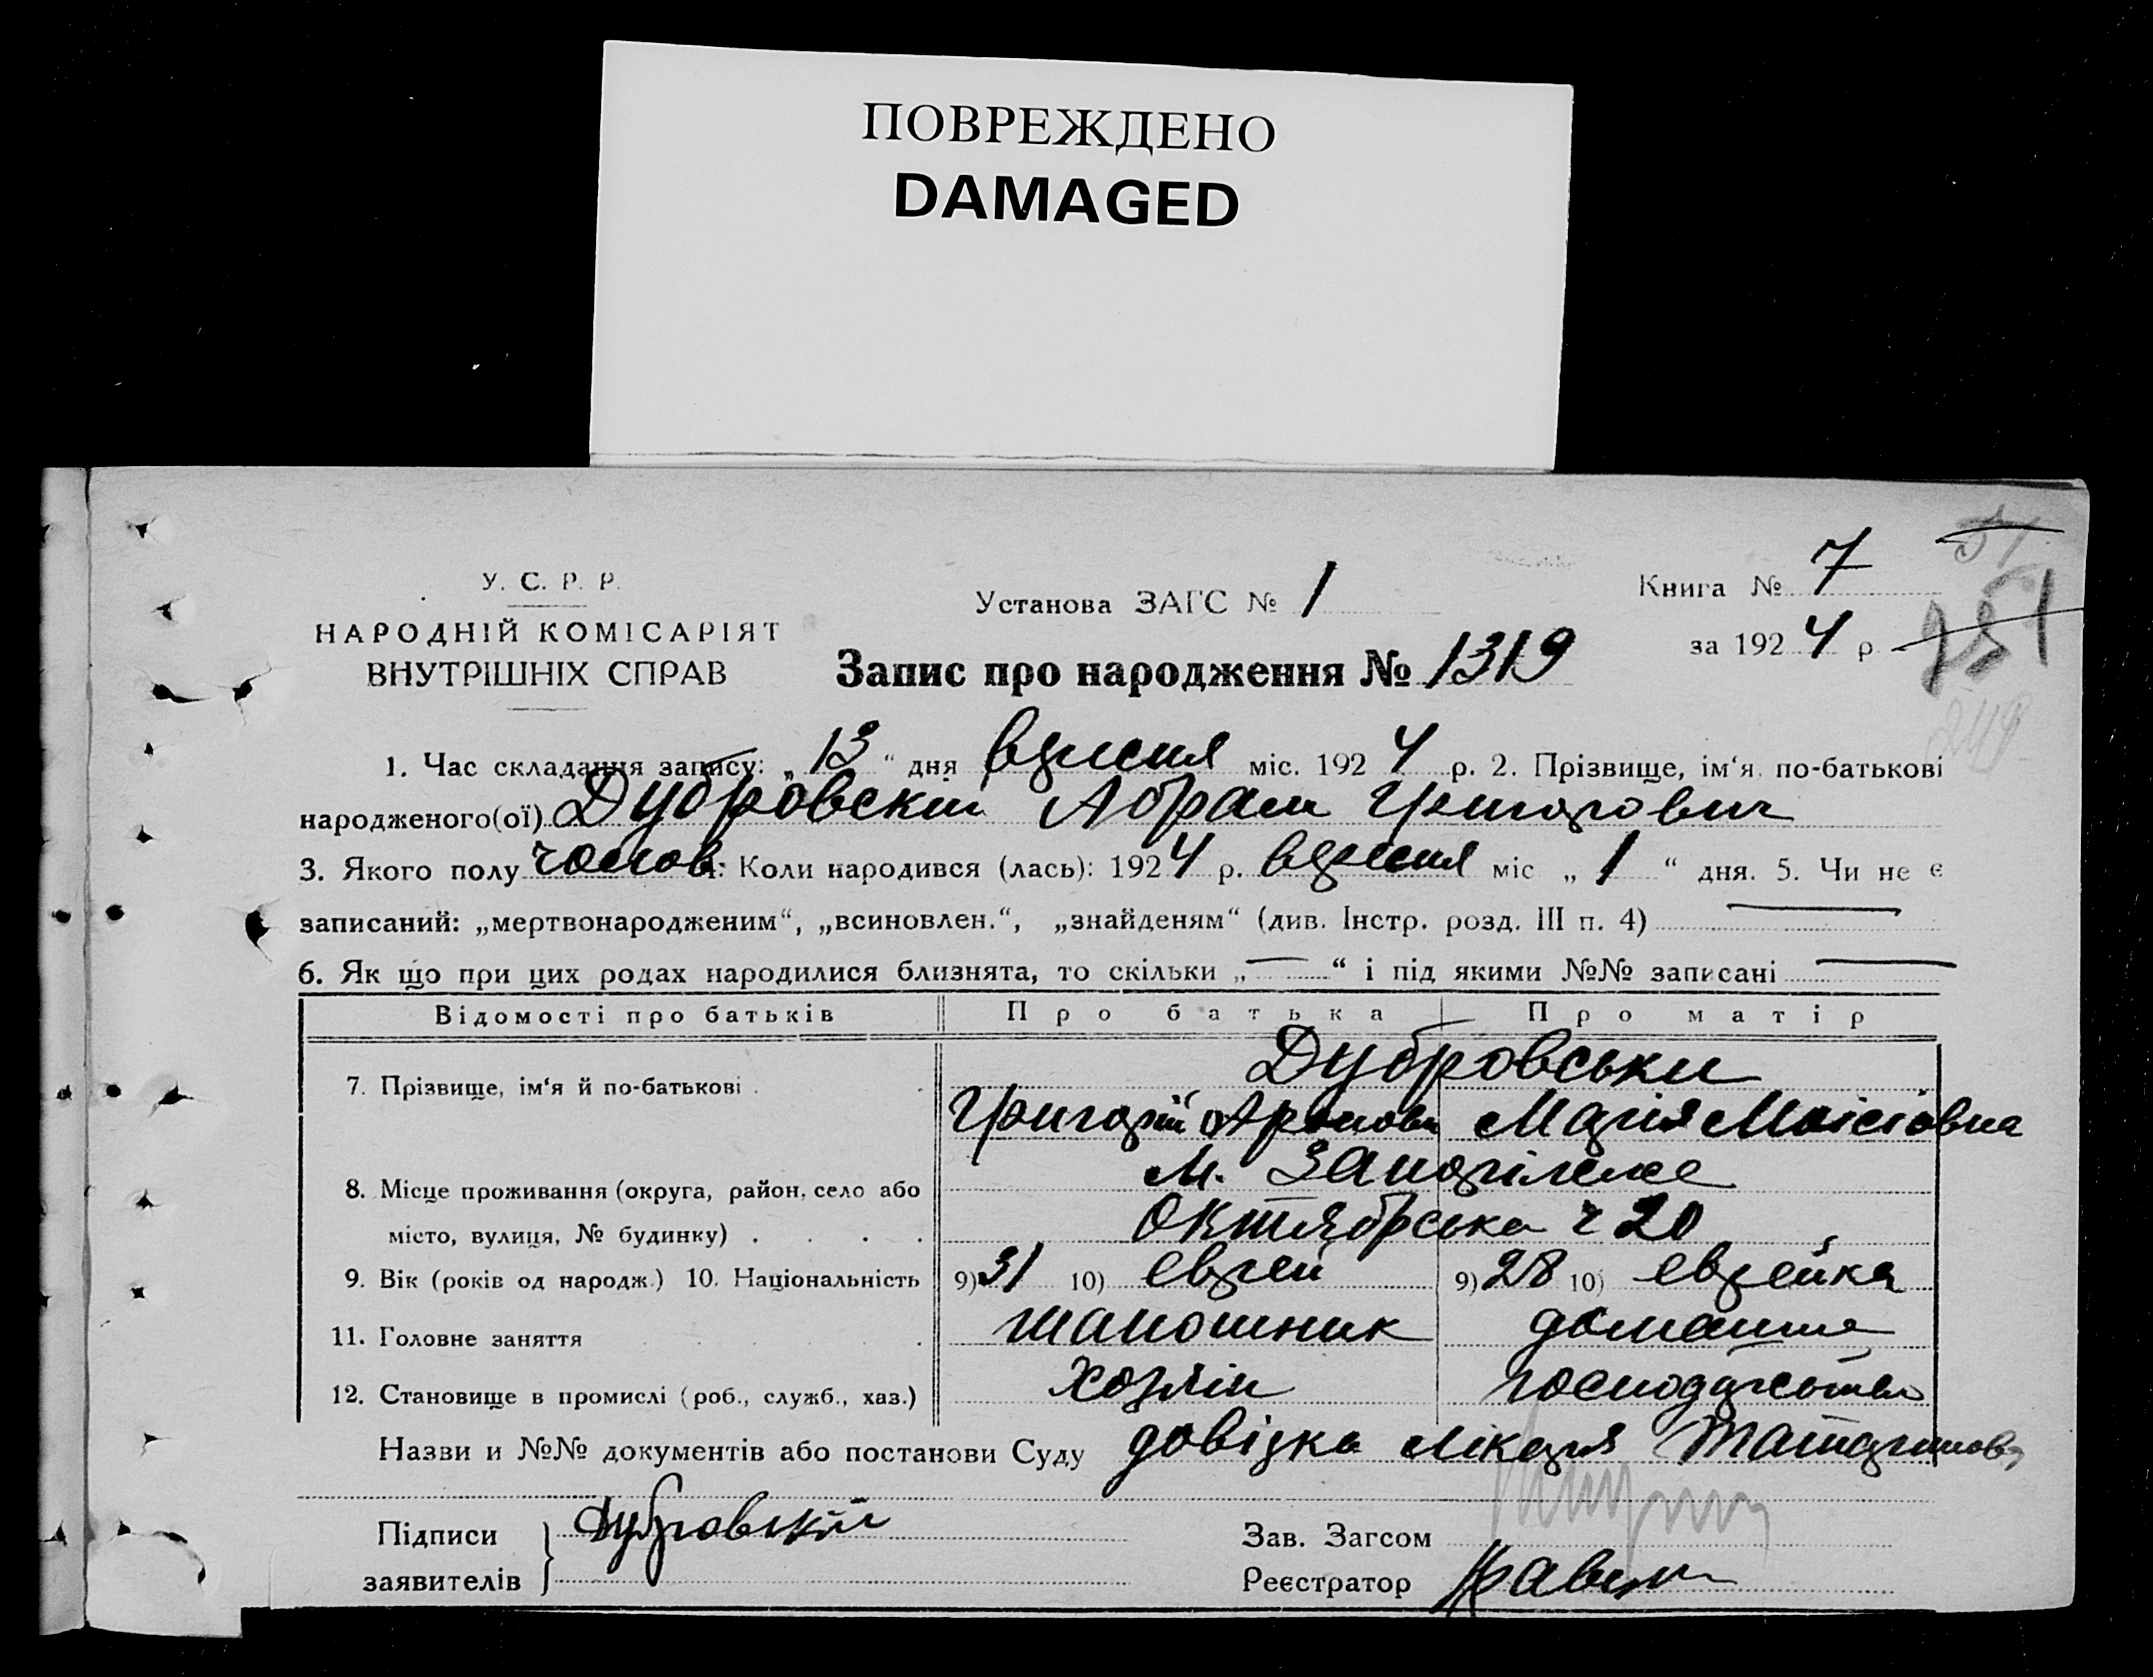 ПОВРЕЖДЕНО
DAMAGED
У. С. Р. Р.
НАРОДНІЙ КОМІСАРІЯТ
ВНУТРІШНІХ СПРАВ
Установа ЗАГС № 1
Книга № 7
за 1924 р
251
Запис про народження № 1319
1. Час складання запису: „13“ дня вересня міс. 1924 р. 2. Прізвище, ім‘я по-батькові
народженого(ої) Дубровский Абрам Григорович
3. Якого полу чолов. 4: Коли народився (лась): 1924 р. вересня міс „1“ дня. 5. Чи не є
записаний: „мертвонародженим“, „всиновлен.“, „знайденям“ (див. Інстр. розд. III п. 4) —
6. Як що при цих родах народилися близнята, то скільки „—“ і під якими №№ записані —
Відомості про батьків Про батька Про матір
7. Прізвище, ім‘я й по-батькові Дубровськи
Григорій Аронови Марія Моісіовна
8. Місце проживання (округа, район, село або м. Запоріжже
місто, вулиця, № будинку) Октябрська ч 20
9. Вік (років од народж.) 10. Національність 9) 31 10) еврей 9) 28 10) еврейка
11. Головне заняття шапошник домашнє
12. Становище в промислі (роб., служб., хаз.) хозяін господарство
Назви и №№ документів або постанови Суду довідка лікаря
Підписи Дубровский
заявителів
Зав. Загсом
Реєстратор